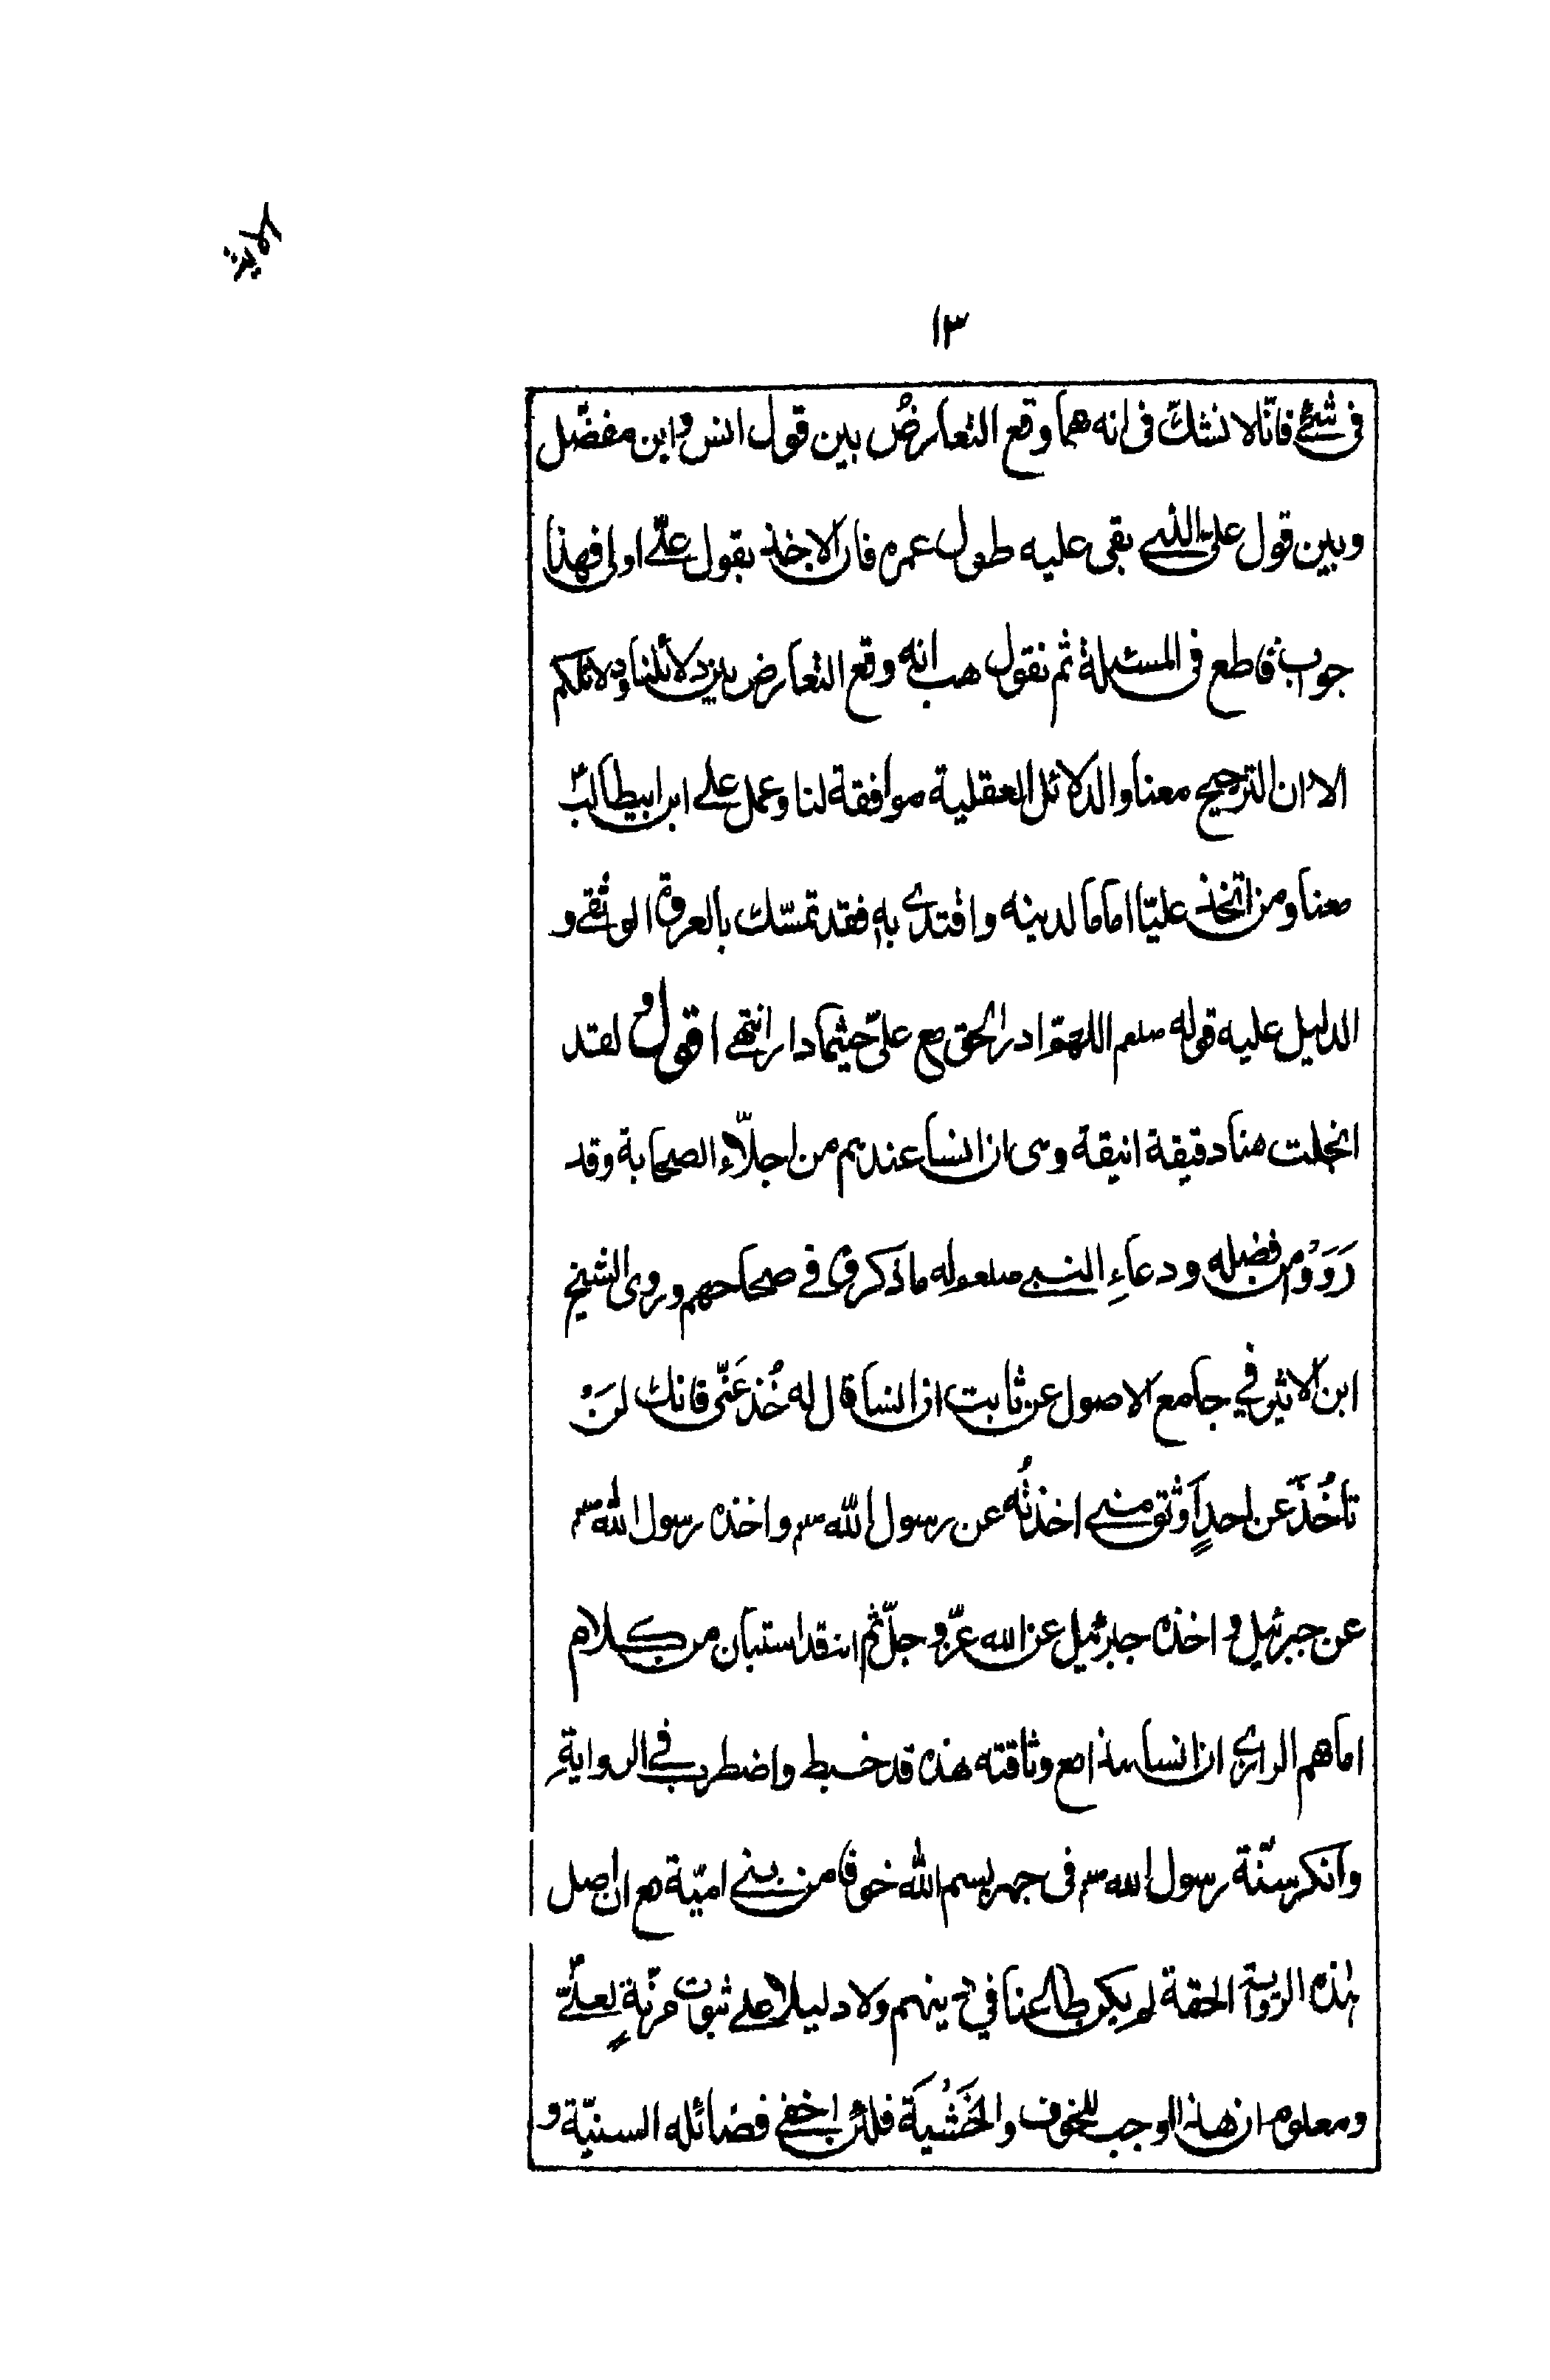 ١٣
فى شئ فانّا لا نشكّ فى انه هما وقع التعارضُ بين قول انس وابن مفضّل
وبين قول علىّ الذى بقى عليه طول عمره فان الاخذ بقول علىّ اولى فهذا
جواب قاطع فى المسئلة ثم نقول هب انه وقع التعارض بين دلائلنا ودلائلكم
الا ان الترجيح معنا والدلائل العقلية موافقة لنا وعمل على ابن ابيطالبؑ
معنا ومن اتخذ عليّا اماما لدينه واقتدى به فقد تمسّك بالعروة الوثقى و
الدليل عليه قوله صلعم اللهمّ ادر الحق مع علىّ حيثما دار انتهى اقول و لقد
انجلت هنا دقيقة انيقة وهى ان انسا عندهم من اجلّاء الصحابة وقد
رَوَوْا من فضله ودعاءِ النبى صلعم له ما ذكروه فى صحاحهم وروى الشيخ
ابن الاثير في جامع الاصول عن ثابت ان انسا قال له خُذ عَنّى فانك لَنْ
تاخُذَ عن احدٍ اَوثق منى اخذتُه عن رسول الله ص واخذه رسول الله ص
عن جبرئيل و اخذه جبرئيل عن الله عزّ وجلّ ثم انه قد استبان من كلام
امامهم الرازى ان انسا هذا مع وثاقته هذه قد خبط واضطرب فى الروايةِ
وانكر سنّة رسول الله ص فى جهر بسم الله خوفا من بنى اميّة مع ان اصل
هذه الرواية الحقة لم يكن طاعنا في دينهم ولا دليلا على ثبوت مزيّةٍ لعلىّؑ
ومعلوم ان هذا اوجب للخوف والخَشْيَة فلئن اخفى فضائله السنيّة و